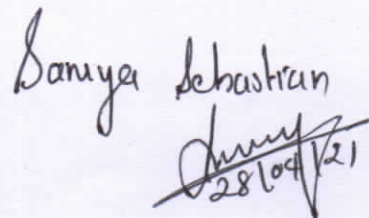 Saniya Sebastian
28/04/21